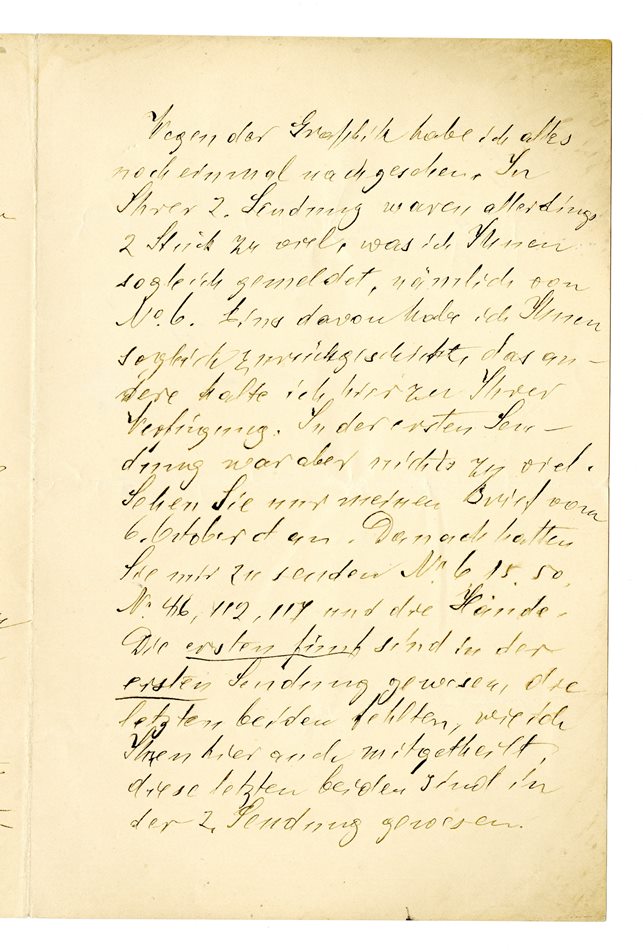 Wegen der Graphik habe ich alles
noch einmal nachgesehen. In
Ihrer 2. Sendung waren allerdings
2 Stück zu viel, was ich Ihnen
sogleich gemeldet, nämlich von
No. 6. Eins davon habe ich Ihnen
sogleich zurückgeschickt, das an-
dere halte ich hier zu Ihrer
Verfügung. In der ersten Sen-
dung war aber nichts zu viel.
Sehen Sie nur meinen Brief vom
6. October d an. Danach hatten
Sie mir zu senden No 6, 15. 50,
No. 46, 112, 117 und die Hände.
Die ersten fünf sind in der
ersten Sendung gewesen, die
letzten beiden fehlten, wie ich
Ihnen hier auch mitgetheilt,
diese letzten beiden sind in
der 2. Sendung gewesen.